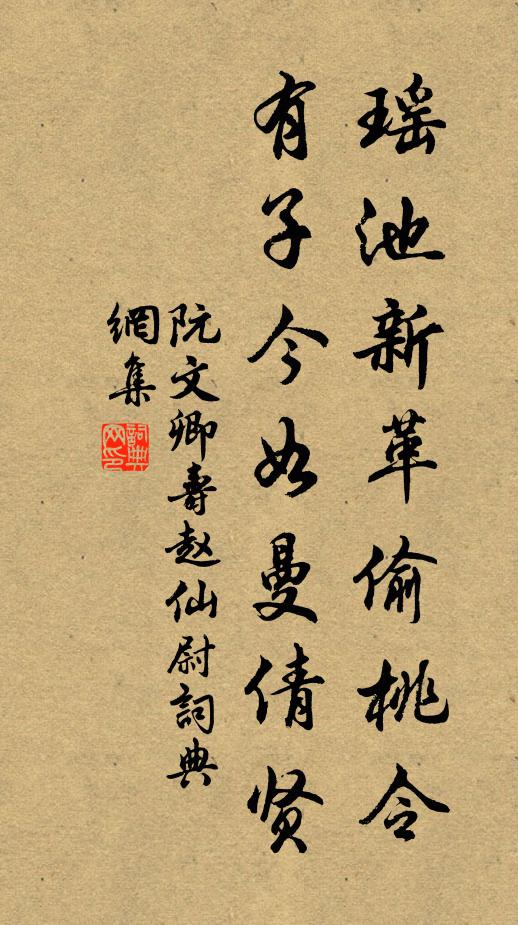 瑶池新革偷桃令
有子今如曼倩贤
阮文卿寿赵仙尉詞典
網集
詞典網印